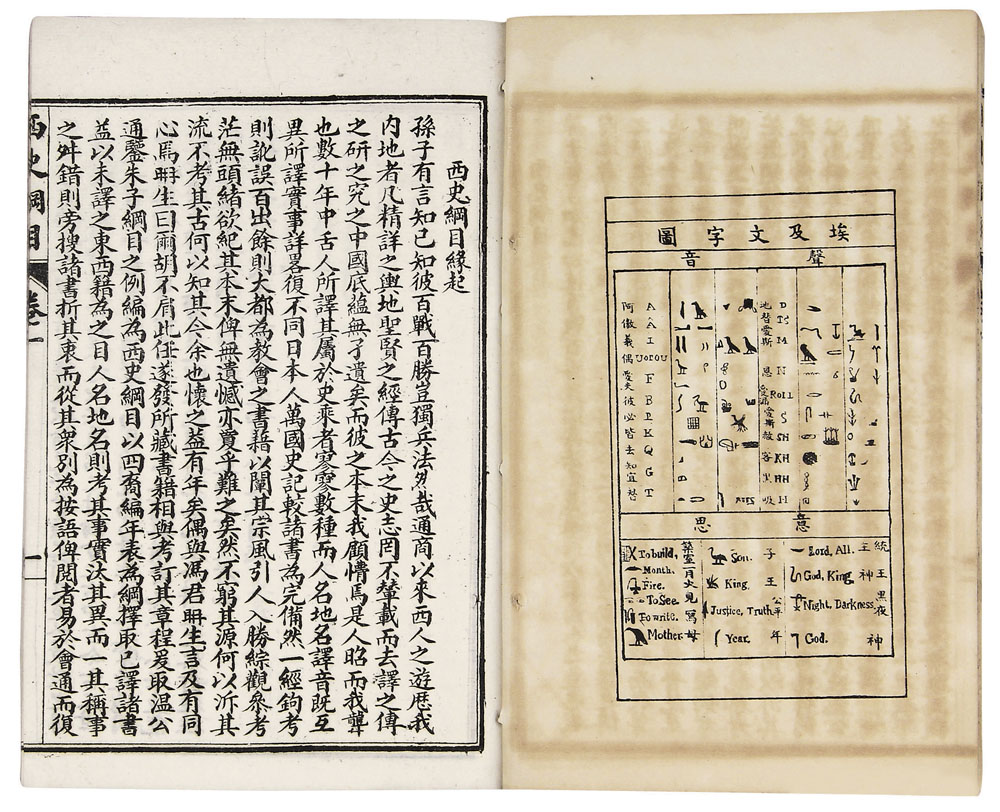 埃及文字圖
聲音
阿 A
傲 Â
義 I
偶 U OD OU
愛夫 F
彼 B
必 P
皆 K
去 Q
知宜 G
T
地 D
替愛斯
M
恩 N
R or L
愛斯 S
赦 SH
客 KH
里 HH
吸 H
意思
To build, 築室
Month. 月
Fire. 火
To See. 見
To write. 寫
Mother. 母
Son. 子
King. 王
Justice, Truth. 公平
Year. 年
Lord, All. 主 統
God, King 神 王
Night, Darkness 黑夜
God. 神
西史綱目緣起
孫子有言知己知彼百戰百勝豈獨兵法然哉通商以來西人之遊歷我
內地者凡精詳之輿地聖賢之經傳古今之史志罔不輦載而去譯之傳
之研之究之中國底蘊無孑遺矣而彼之本末我顧懵焉是人昭而我聾
也數十年中舌人所譯其屬於史乘者寥寥數種而人名地名譯音既互
異所譯實事詳畧復不同日本人萬國史記較諸書為完備然一經鉤考
則訛誤百出餘則大都為教會之書藉以闡其宗風引人入勝綜觀參考
茫無頭緒欲紀其本末俾無遺憾亦戛乎難之矣然不窮其源何以沂其
流不考其古何以知其今余也懷之蓋有年矣偶與馮君畊生言及有同
心焉畊生曰爾胡不肩此任遂發所藏書籍相與考訂其章程爰取温公
通鑒朱子綱目之例編為西史綱目以四裔編年表為綱擇取已譯諸書
益以未譯之東西籍為之目人名地名則考其事實決其異而一其稱事
之舛錯則旁搜諸書折其衷而從其衆别為按語俾閱者易於會通而復
西史綱目 卷一 一